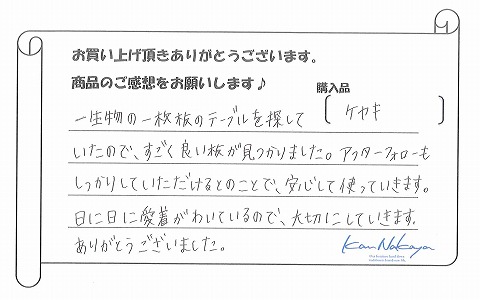 お買い上げ頂きありがとうございます。
商品のご感想をお願いします♪
購入品
ケヤキ
一生物の一枚板のテーブルを探して
いたので、すごく良い板が見つかりました。アフターフォローも
しっかりしていただけるとのことで、安心して使っていきます。
日に日に愛着がわいているので、大切にしていきます。
ありがとうございました。
Kan Nakaya